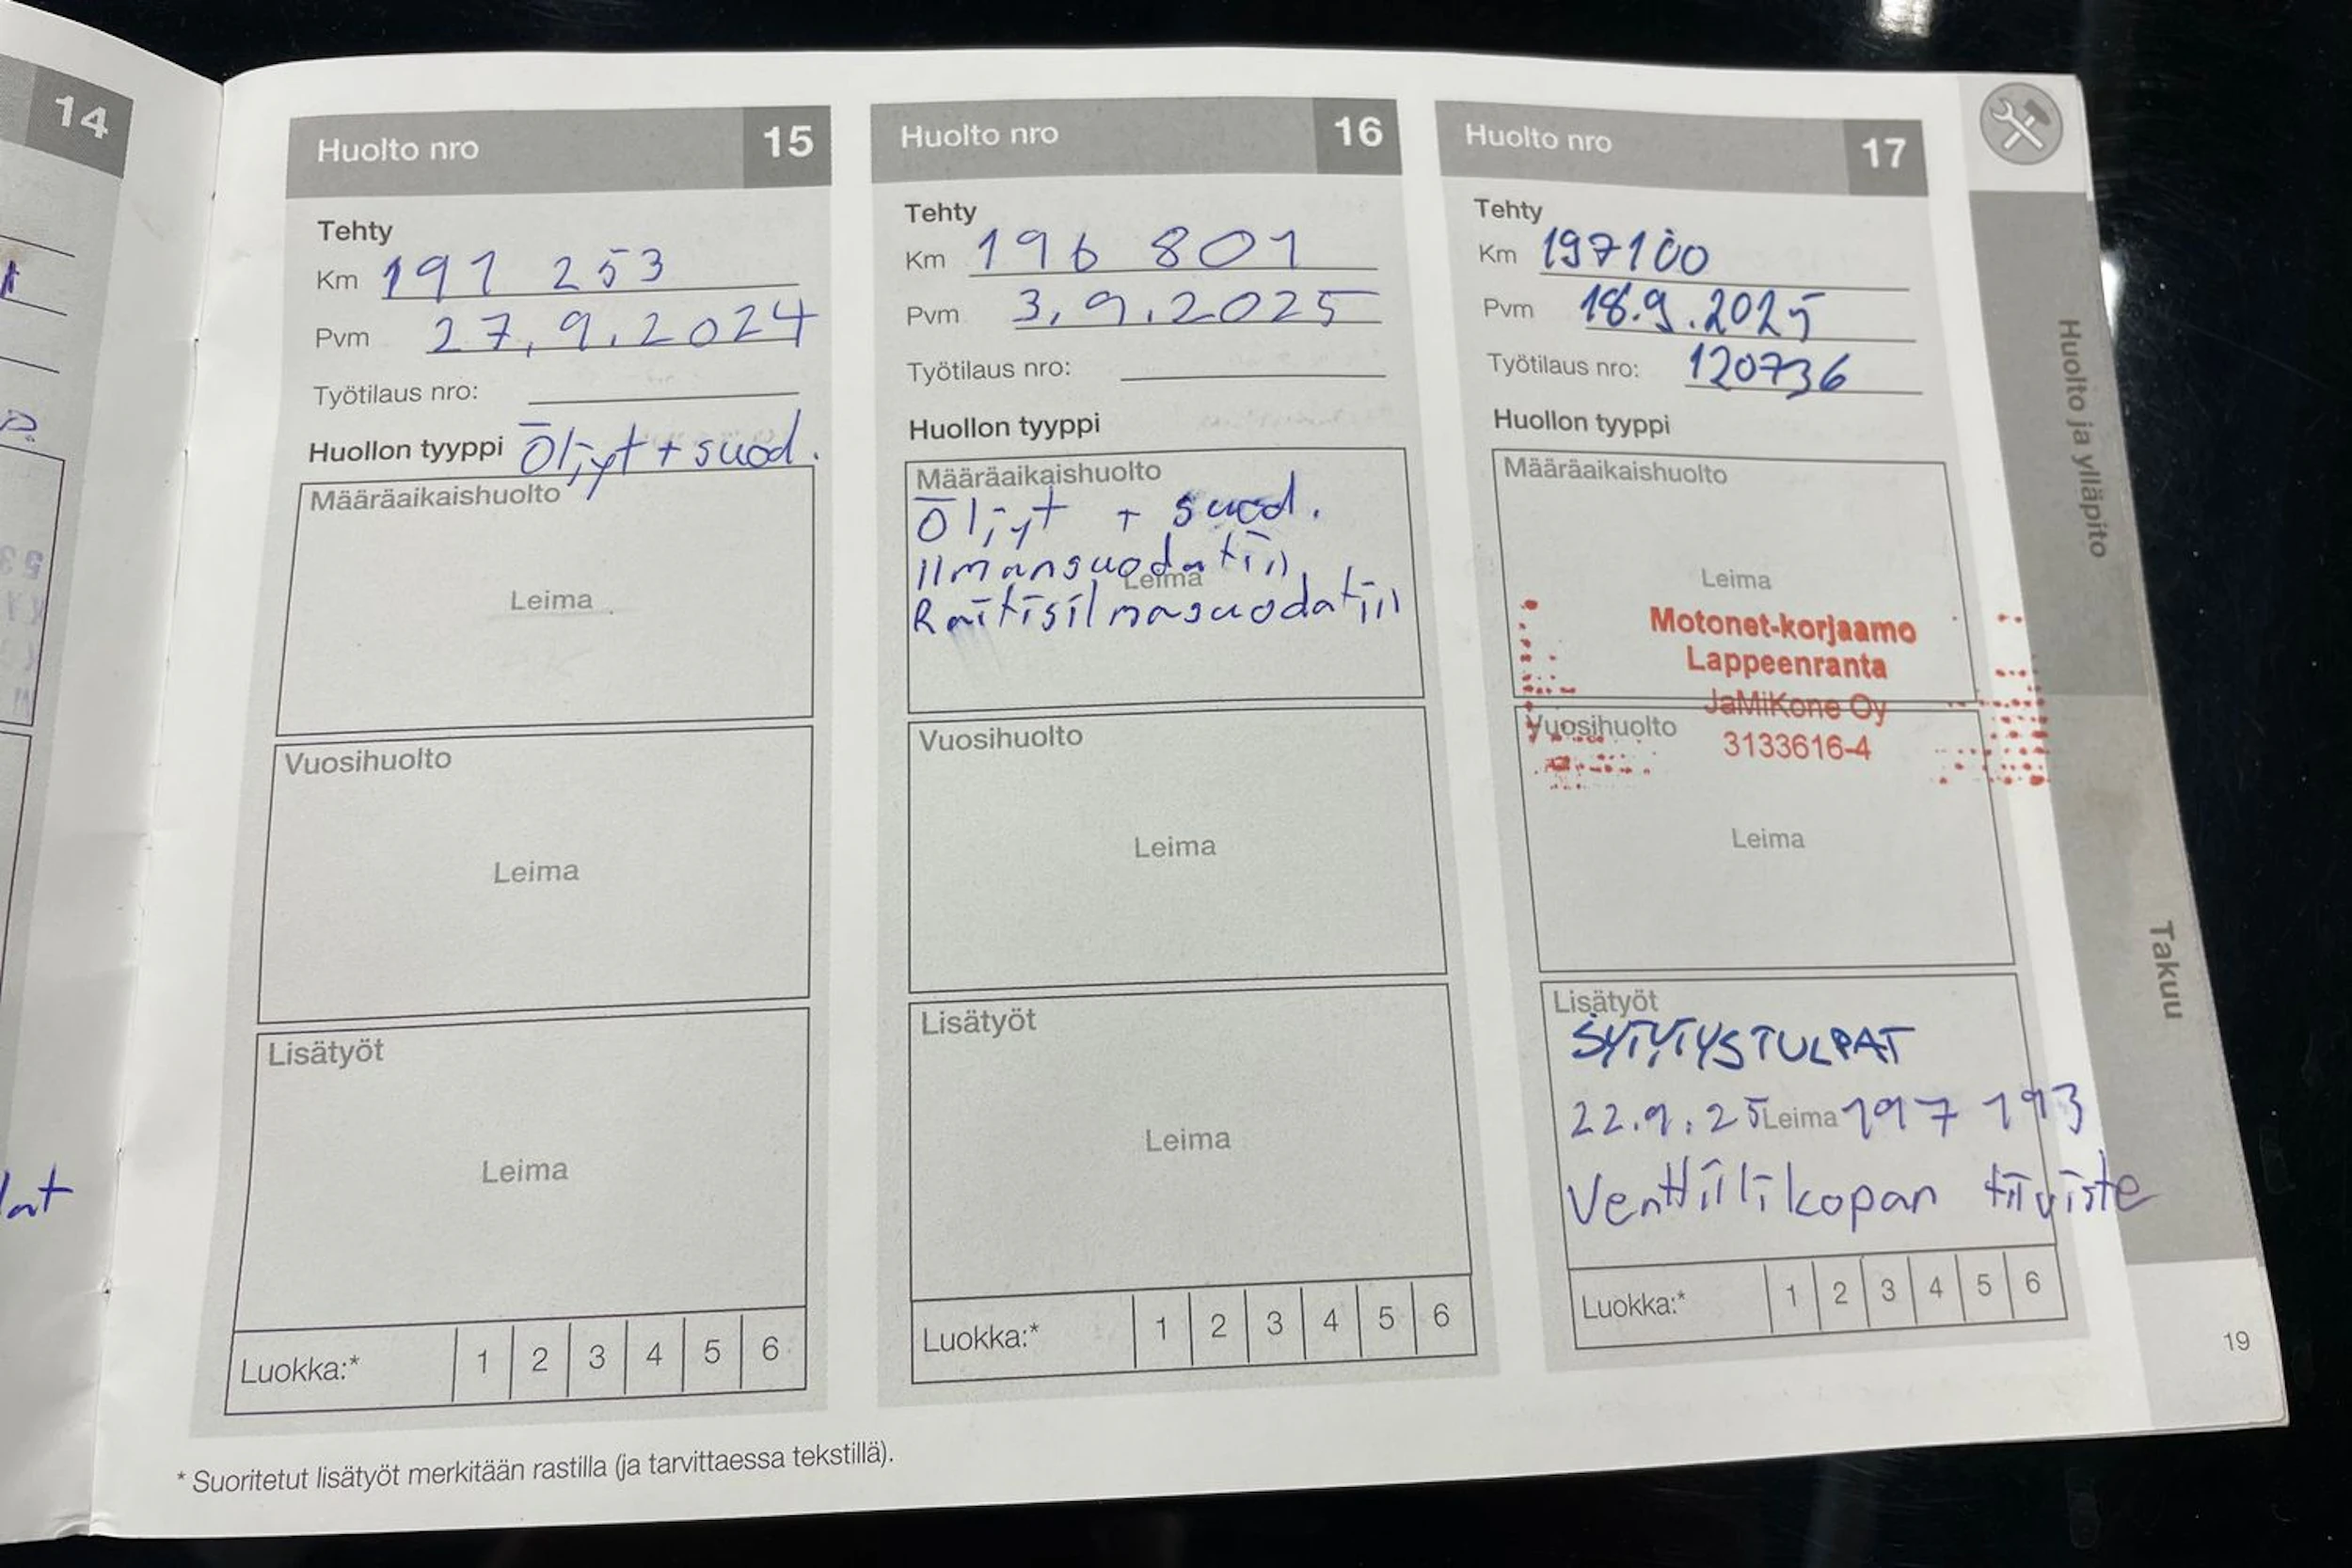 14
Huolto nro 15
Tehty
Km 191 253
Pvm 27.9.2024
Työtilaus nro:
Huollon tyyppi Öljyt + suod.
Määräaikaishuolto
Leima
Vuosihuolto
Leima
Lisätyöt
Leima
Luokka:* 1 2 3 4 5 6
Huolto nro 16
Tehty
Km 196 801
Pvm 3.9.2025
Työtilaus nro:
Huollon tyyppi
Määräaikaishuolto
Öljyt + suod.
Ilmansuodatin
Leima
Raitisilmasuodatin
Vuosihuolto
Leima
Lisätyöt
Leima
Luokka:* 1 2 3 4 5 6
Huolto nro 17
Tehty
Km 197100
Pvm 18.9.2025
Työtilaus nro: 120736
Huollon tyyppi
Määräaikaishuolto
Leima
Motonet-korjaamo
Lappeenranta
JaMiKone Oy
Vuosihuolto
3133616-4
Leima
Lisätyöt
SYTYTYSTULPAT
22.9.25 Leima 197 193
Venttiilikopan tiiviste
Luokka:* 1 2 3 4 5 6
* Suoritetut lisätyöt merkitään rastilla (ja tarvittaessa tekstillä).
Huolto ja ylläpito
Takuu
19